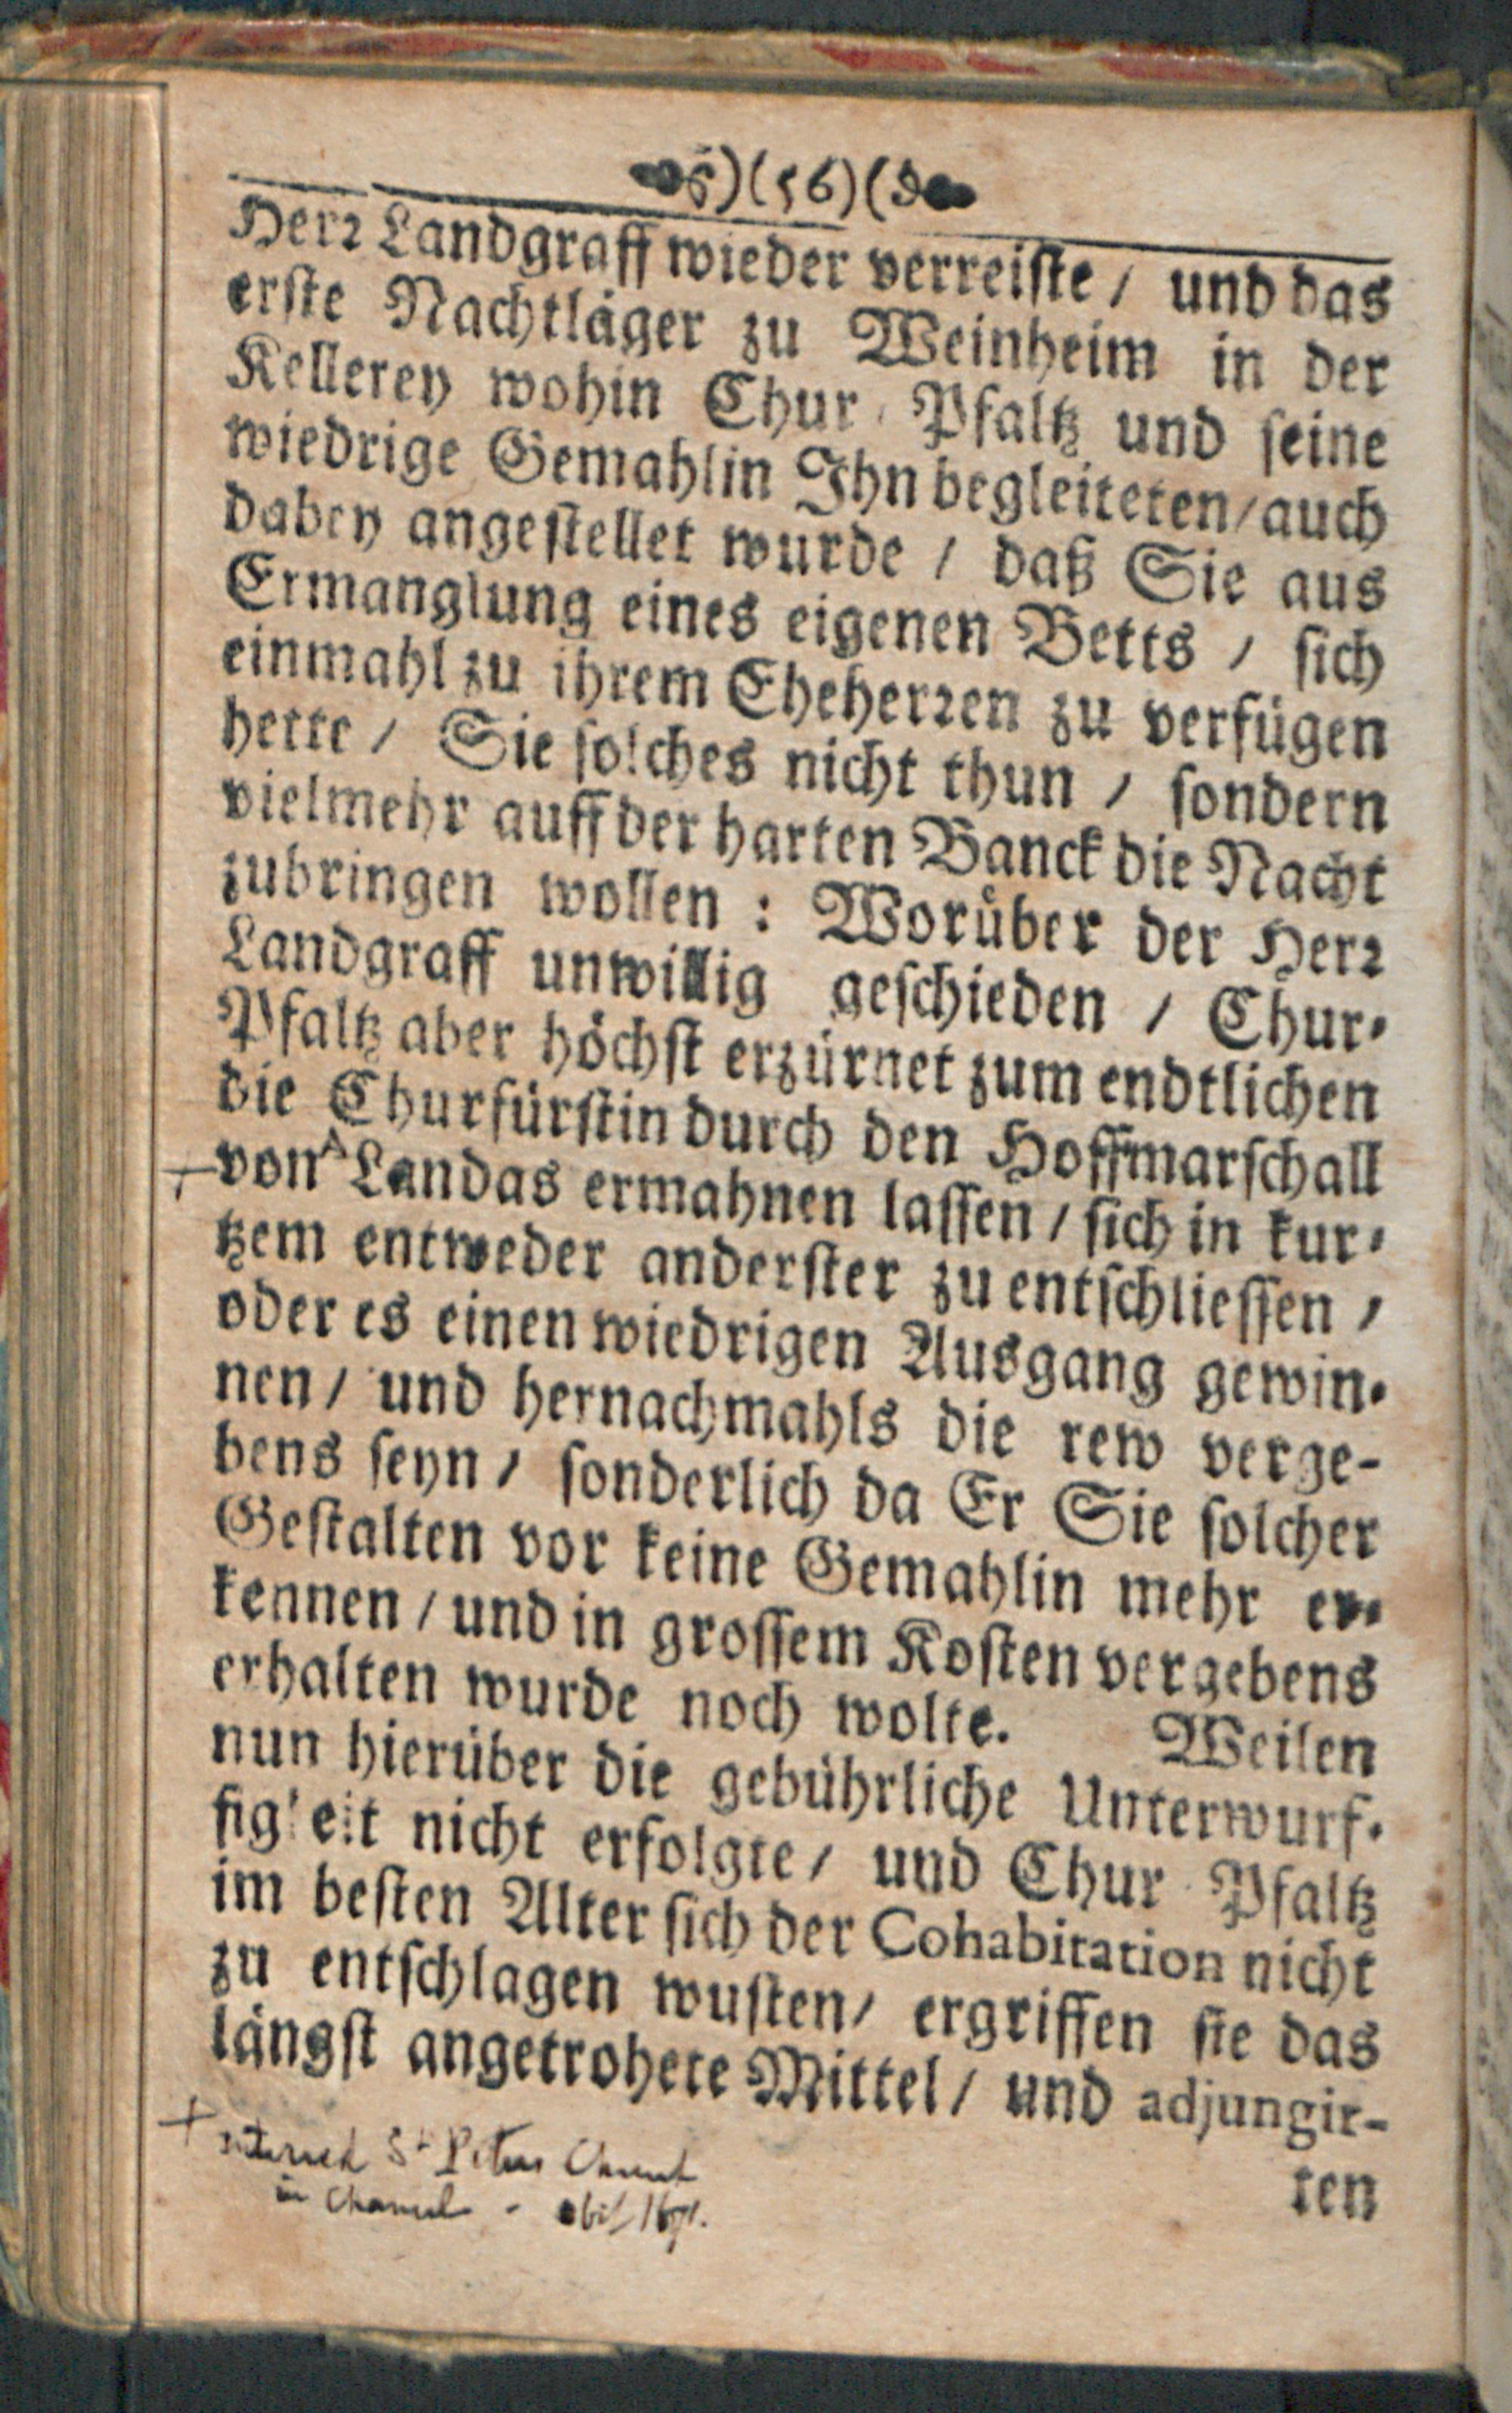 )(56)(
Herr Landgraff wieder verreiste / und das
erste Nachtläger zu Weinheim in der
Kellerey wohin Chur-Pfaltz und seine
wiedrige Gemahlin Ihn begleiteten / auch
dabey angestellet wurde / daß Sie aus
Ermanglung eines eigenen Betts / sich
einmahl zu ihrem Eheherren zu verfügen
hette / Sie solches nicht thun / sondern
vielmehr auff der harten Banck die Nacht
zubringen wollen : Worüber der Herr
Landgraff unwillig geschieden / Chur-
Pfaltz aber höchst erzürnet zum endtlichen
die Churfürstin durch den Hoffmarschall
von Landas ermahnen lassen / sich in kur-
tzem entweder anderster zu entschliessen /
oder es einen wiedrigen Ausgang gewin-
nen / und hernachmahls die rew verge-
bens seyn / sonderlich da Er Sie solcher
Gestalten vor keine Gemahlin mehr er-
kennen / und in grossem Kosten vergebens
erhalten wurde noch wolte. Weilen
nun hierüber die gebührliche Unterwurf-
figkeit nicht erfolgte / und Chur-Pfaltz
im besten Alter sich der Cohabitation nicht
zu entschlagen wusten / ergriffen sie das
längst angetrohete Mittel / und adjungir-
ten
+ St Peters
in Chancel - obit 1671.